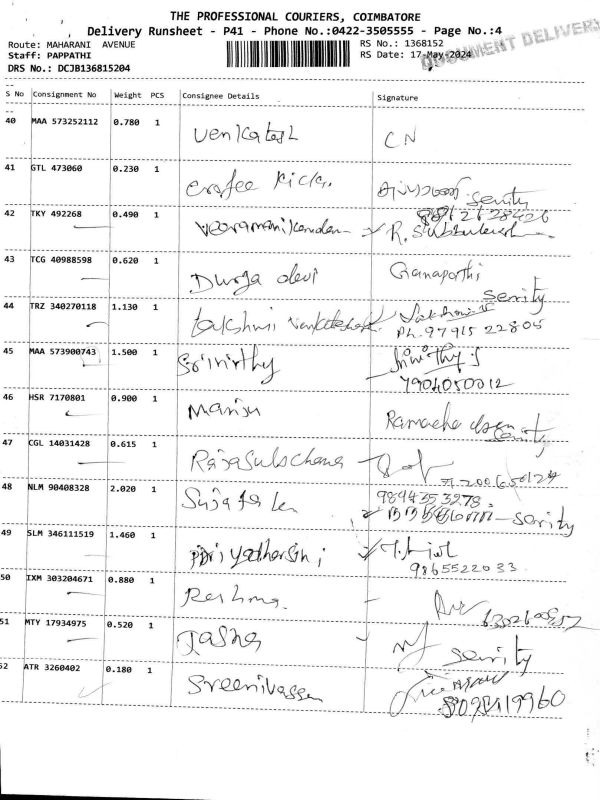 THE PROFESSIONAL COURIERS, COIMBATORE
Delivery Runsheet - P41 - Phone No.:0422-3505555 - Page No.:4
DOCUMENT DELIVERY
Route: MAHARANI AVENUE RS No.: 1368152
Staff: PAPPATHI RS Date: 17-May-2024
DRS No.: DCJB136815204
S No Consignment No Weight PCS Consignee Details Signature
40 MAA 573252112 0.780 1 Venkatesh CN
41 GTL 473060 0.230 1 serity
42 TKY 492268 0.490 1 Veeramanikandan R.
43 TCG 40988598 0.620 1 Durga devi Ganapathi
serity
44 TRZ 340270118 1.130 1 Lakshmi
Ph. 97915 22805
45 MAA 573900743 1.500 1 Srinirthy
7904050012
46 HSR 7170801 0.900 1 Manju
serity
47 CGL 14031428 0.615 1
48 NLM 90408328 2.020 1 9894353278
serity
49 SLM 346111519 1.460 1 Priyadharsini
9865522033
50 IXM 303204671 0.880 1 Reshma
51 MTY 17934975 0.520 1 serity
52 ATR 3260402 0.180 1 Sreenivassan